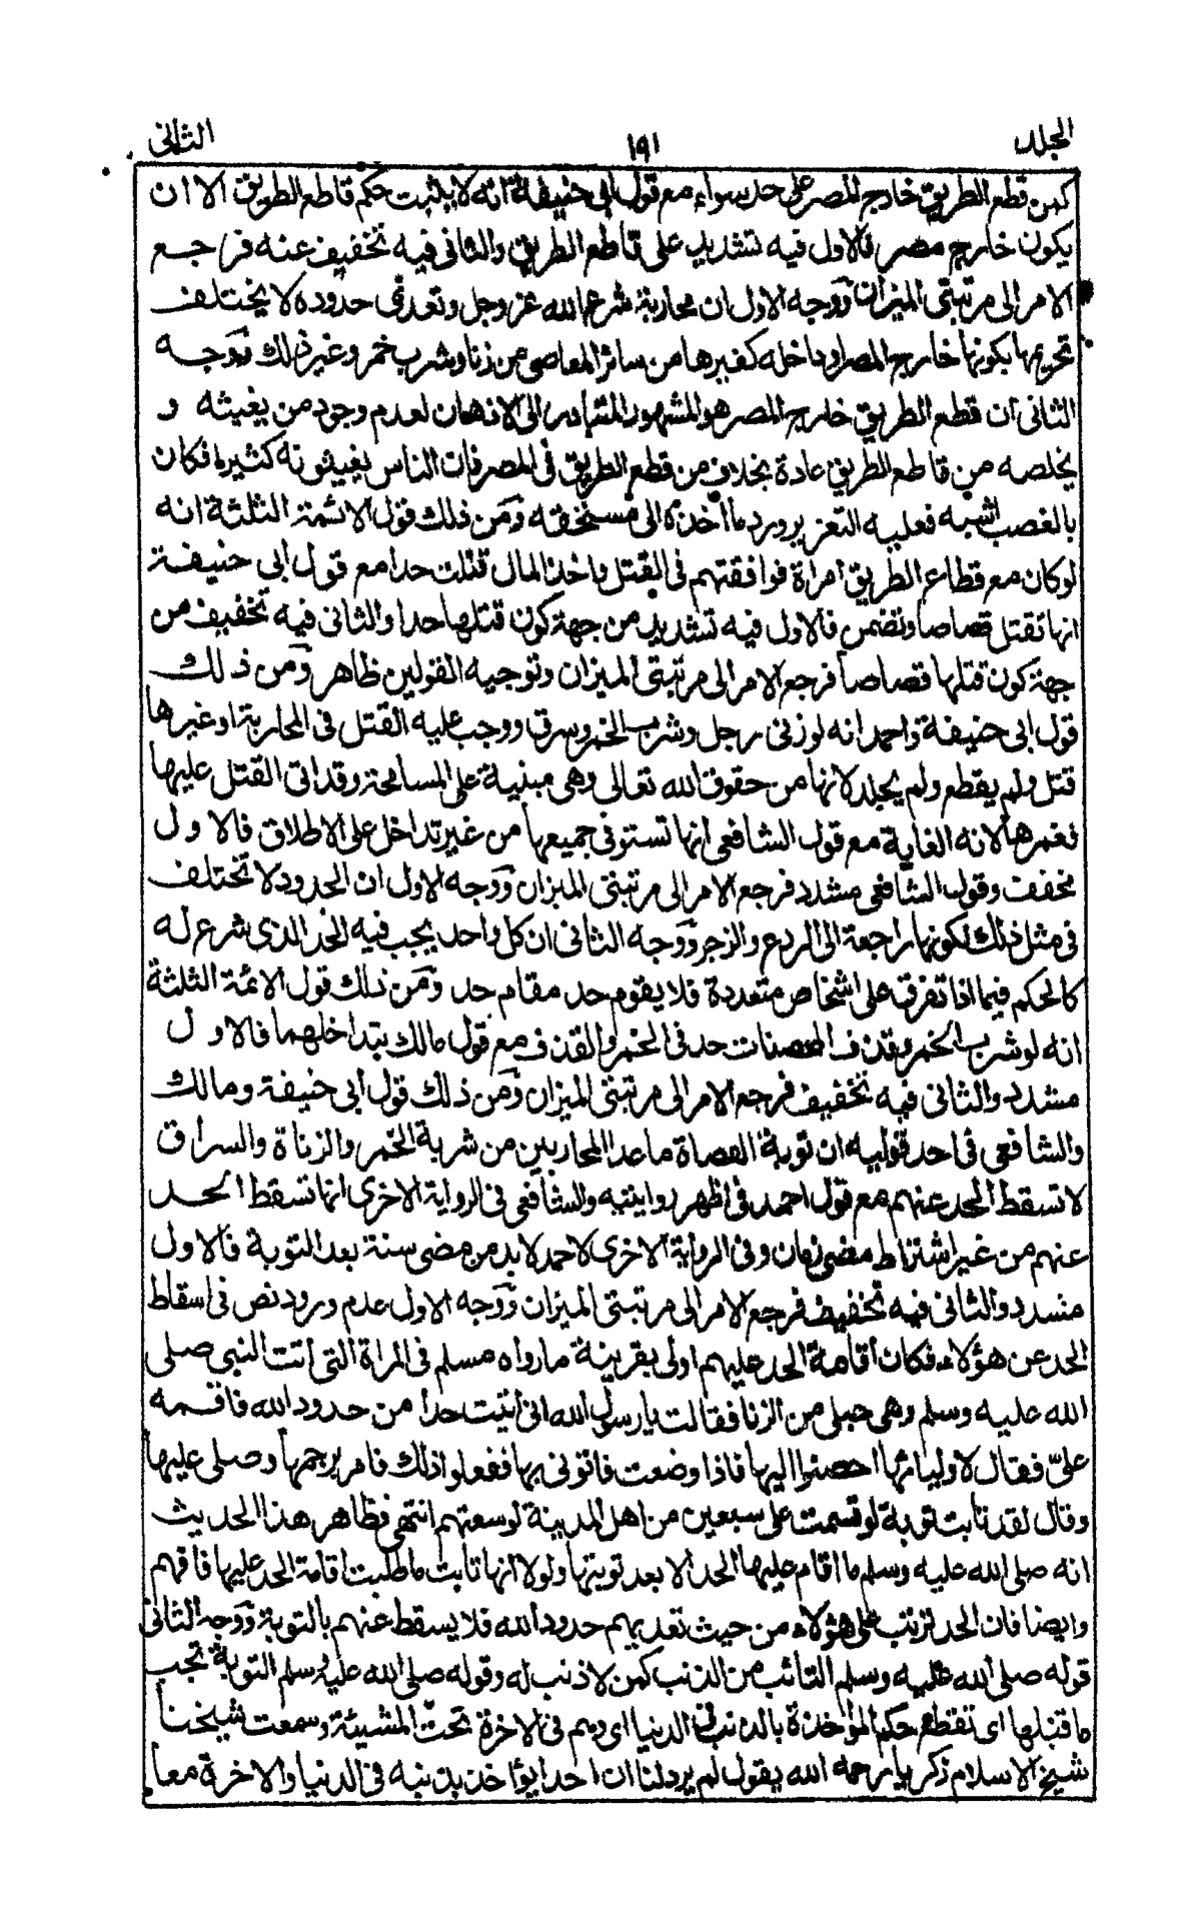 المجلد ١٩١ الثانى
كمن قطع الطريق خارج المصر على حد سواء مع قول ابى حنيفة انه لا يثبت حكم قاطع الطريق الا ان
يكون خارج مصر فالاول فيه تشديد على قاطع الطريق والثانى فيه تخفيف عنه فرجع
الامر الى مرتبتى الميزان ووجه الاول ان محاربة شرع الله عز وجل وتعدى حدوده لا يختلف
تحريمها بكونها خارج المصر او داخله كغيرها من سائر المعاصى من زنا وشرب خمر وغير ذلك ووجه
الثانى ان قطع الطريق خارج المصر هو المشهور المتبادر الى الاذهان لعدم وجود من يغيثه و
يخلصه من قاطع الطريق عادة بخلاف من قطع الطريق فى المصر فان الناس يغيثونه كثيرا فكان
بالغصب اشبه فعليه التعزير ورد ما اخذه الى مستحقه ومن ذلك قول الائمة الثلثة انه
لو كان مع قطاع الطريق امراة فوافقتهم فى القتل واخذ المال قتلت حدا مع قول ابى حنيفة
انها تقتل قصاصا وتضمن فالاول فيه تشديد من جهة كون قتلها حدا والثانى فيه تخفيف من
جهة كون قتلها قصاصا فرجع الامر الى مرتبتى الميزان وتوجيه القولين ظاهر ومن ذلك
قول ابى حنيفة واحمد انه لو زنى رجل وشرب الخمر وسرق ووجب عليه القتل فى المحاربة او غيرها
قتل ولم يقطع ولم يجلد لانها من حقوق الله تعالى وهى مبنية على المسامحة وقد اتى القتل عليها
فغمرها لانه الغاية مع قول الشافعى انها تستوفى جميعها من غير تداخل على الاطلاق فالاول
مخفف وقول الشافعى مشدد فرجع الامر الى مرتبتى الميزان ووجه الاول ان الحدود لا تختلف
فى مثل ذلك لكونها راجعة الى الردع والزجر ووجه الثانى ان كل واحد يجب فيه الحد الذى شرع له
كالحكم فيما اذا تفرق على اشخاص متعددة فلا يقوم حد مقام حد ومن ذلك قول الائمة الثلثة
انه لو شرب الخمر وقذف المحصنات حد فى الخمر والقذف مع قول مالك بتداخلهما فالاول
مشدد والثانى فيه تخفيف فرجع الامر الى مرتبتى الميزان ومن ذلك قول ابى حنيفة ومالك
والشافعى فى احد قوليه ان توبة العصاة ماعدا المحاربين من شربة الخمر والزناة والسراق
لا تسقط الحد عنهم مع قول احمد فى اظهر روايتيه والشافعى فى الرواية الاخرى انها تسقط الحد
عنهم من غير اشتراط مضى زمان وفى الرواية الاخرى لاحمد لا بد من مضى سنة بعد التوبة فالاول
مشدد والثانى فيه تخفيف فرجع الامر الى مرتبتى الميزان ووجه الاول عدم ورود نص فى اسقاط
الحد عن هؤلاء فكان اقامة الحد عليهم اولى بقرينة ما رواه مسلم فى المراة التى أتت النبى صلى
الله عليه وسلم وهى حبلى من الزنا فقالت يا رسول الله انى أتيت حدا من حدود الله فاقمه
علىّ فقال لاوليائها احسنوا اليها فاذا وضعت فاتونى بها ففعلوا ذلك فامر برجمها وصلى عليها
وقال لقد تابت توبة لو قسمت على سبعين من اهل المدينة لوسعتهم انتهى فظاهر هذا الحديث
انه صلى الله عليه وسلم ما اقام عليها الحد الا بعد توبتها ولولا انها تابت ما طلبت اقامة الحد عليها فافهم
وايضا فان الحد ترتب على هؤلاء من حيث تعديهم حدود الله فلا يسقط عنهم بالتوبة ووجه الثانى
قوله صلى الله عليه وسلم التائب من الذنب كمن لا ذنب له وقوله صلى الله عليه وسلم التوبة تجب
ما قبلها اى تقطع حكم المؤاخذة بالذنب فى الدنيا اى وهم فى الاخرة تحت المشيئة وسمعت شيخنا
شيخ الاسلام زكريا رحمه الله يقول لم يرد لنا ان احدا يؤاخذ بذنبه فى الدنيا والاخرة معا